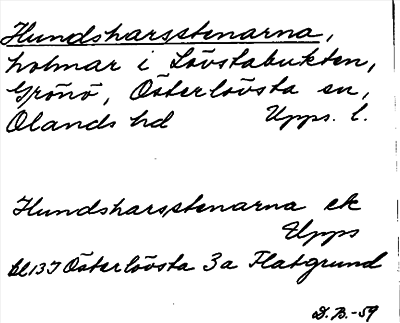 Hundsharsstenarna,
holmar i Lövstabukten,
Gränö, Österlövsta sn,
Olands hd Upps. l.
Hundsharsstenarna ek
Upps
bl 13I Österlövsta 3a Flatgrund
D. B. -59